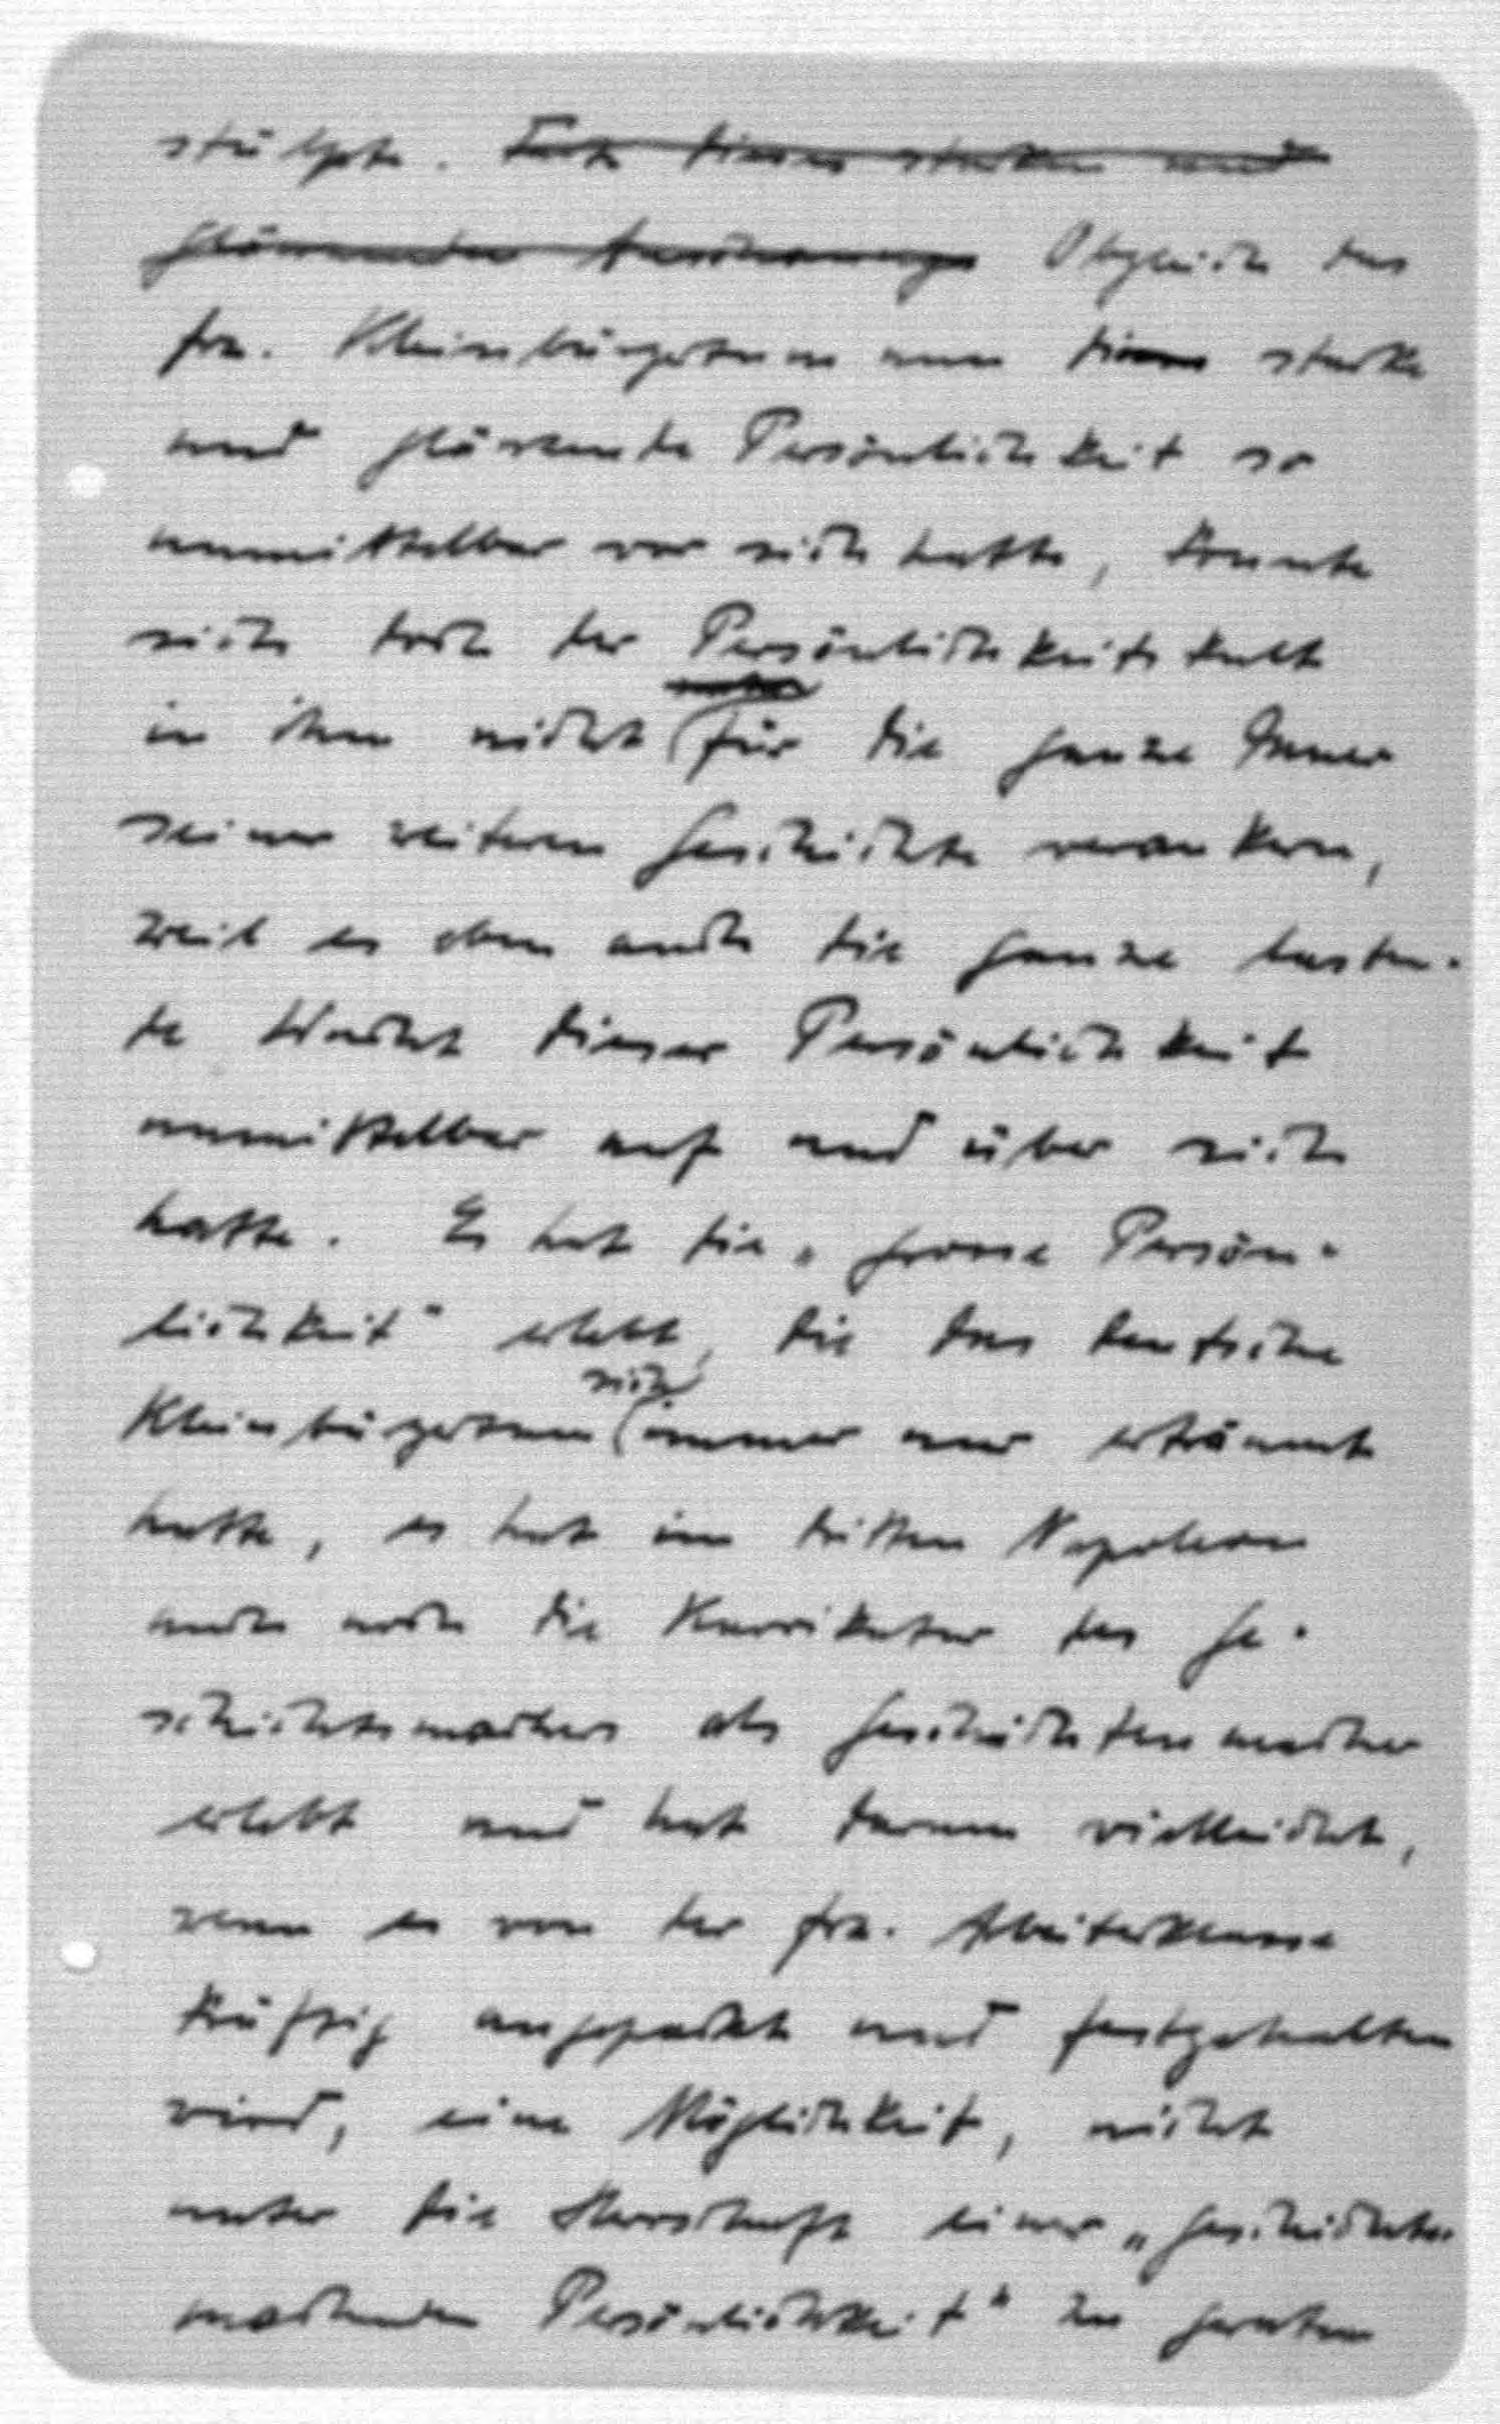 stülpte. Trotz dieser starken und
glänzenden Ausdehnung Obgleich das
frz. Kleinbürgertum nun diese starke
und glänzende Persönlichkeit so
unmittelbar vor sich hatte, konnte
sich doch der Persönlichkeitskult
in ihm nicht für die ganze Dauer
seiner weiteren Geschichte verankern,
weil es eben auch die ganze lasten-
de Wucht dieser Persönlichkeit
unmittelbar auf und über sich
hatte. Es hat die „grosse Persön-
lichkeit" erlebt, die das deutsche
Kleinbürgertum sich immer nur erträumt
hatte, es hat im dritten Napoleon
auch noch die Karrikatur des Ge-
schichtsmachers als Geschichtenmacher
erlebt und hat darum vielleicht,
wenn es von der frz. Arbeiterklasse
kräftig angepackt und festgehalten
wird, eine Möglichkeit, nicht
unter die Herrschaft einer „geschichte-
machenden Persönlichkeit" zu geraten